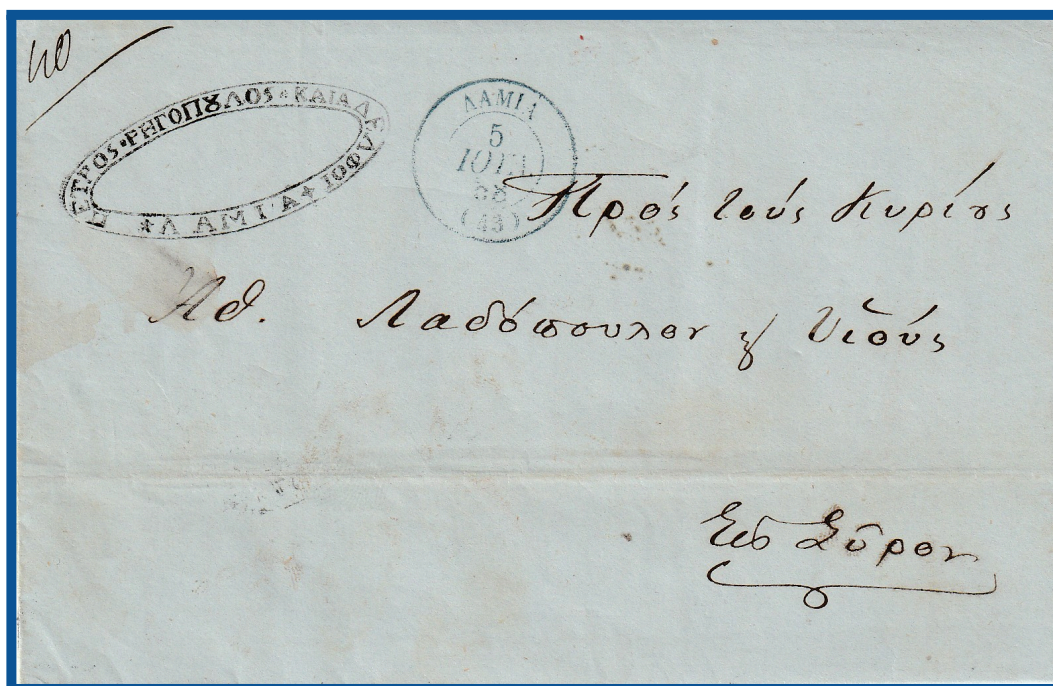 40
ΠΕΤΡΟΣ • ΡΗΓΟΠȢΛΟΣ • ΚΑΙ ΑΔΕΛΦΟΙ
ΛΑΜΙΑ
ΛΑΜΙΑ
5
ΙΟΥΛ
(43)
Πρός τούς Κυρίȣς
Αθ. Λαδόπουλον ϗ Υἱούς
Εἰς Σῦρον